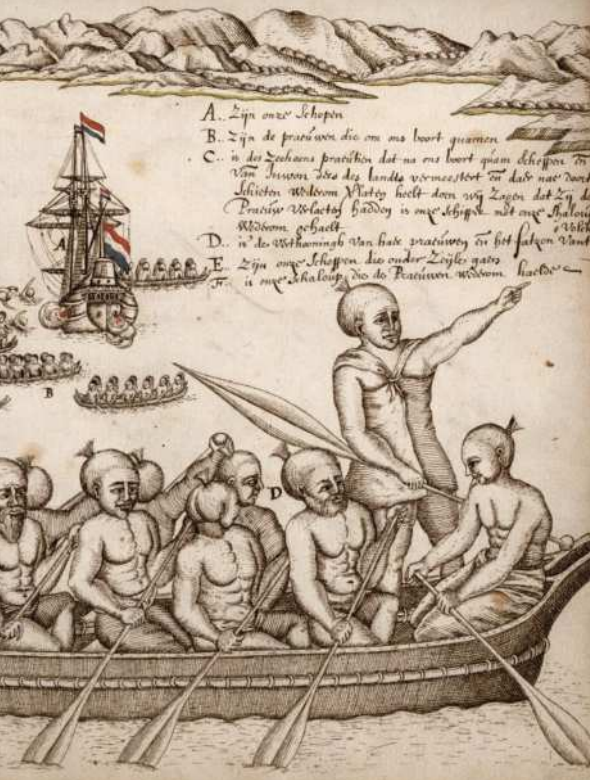 A.. Zijn onze Schepen
B.. Zijn de praeuwen die om ons boort quamen
C.. is des Zeehaens praeutien dat na ons boort quam Scheppen en
van Inwon ders des landts vermeestert en daer nae door
Schieten Wederom Verlaten heelt doen wij Zagen dat Zij de
Praeuw Verlaeten hadden is onze Schipper met onze Shaloup
Wederom gehaelt
D.. is de Verthooningh Van haer praeuwen en het fatzon Vant
E Zijn onze Scheppen die onder Zeijle gaen
F.. is onze Schaloup die de Praeuwen wederom haelde
A
B
D